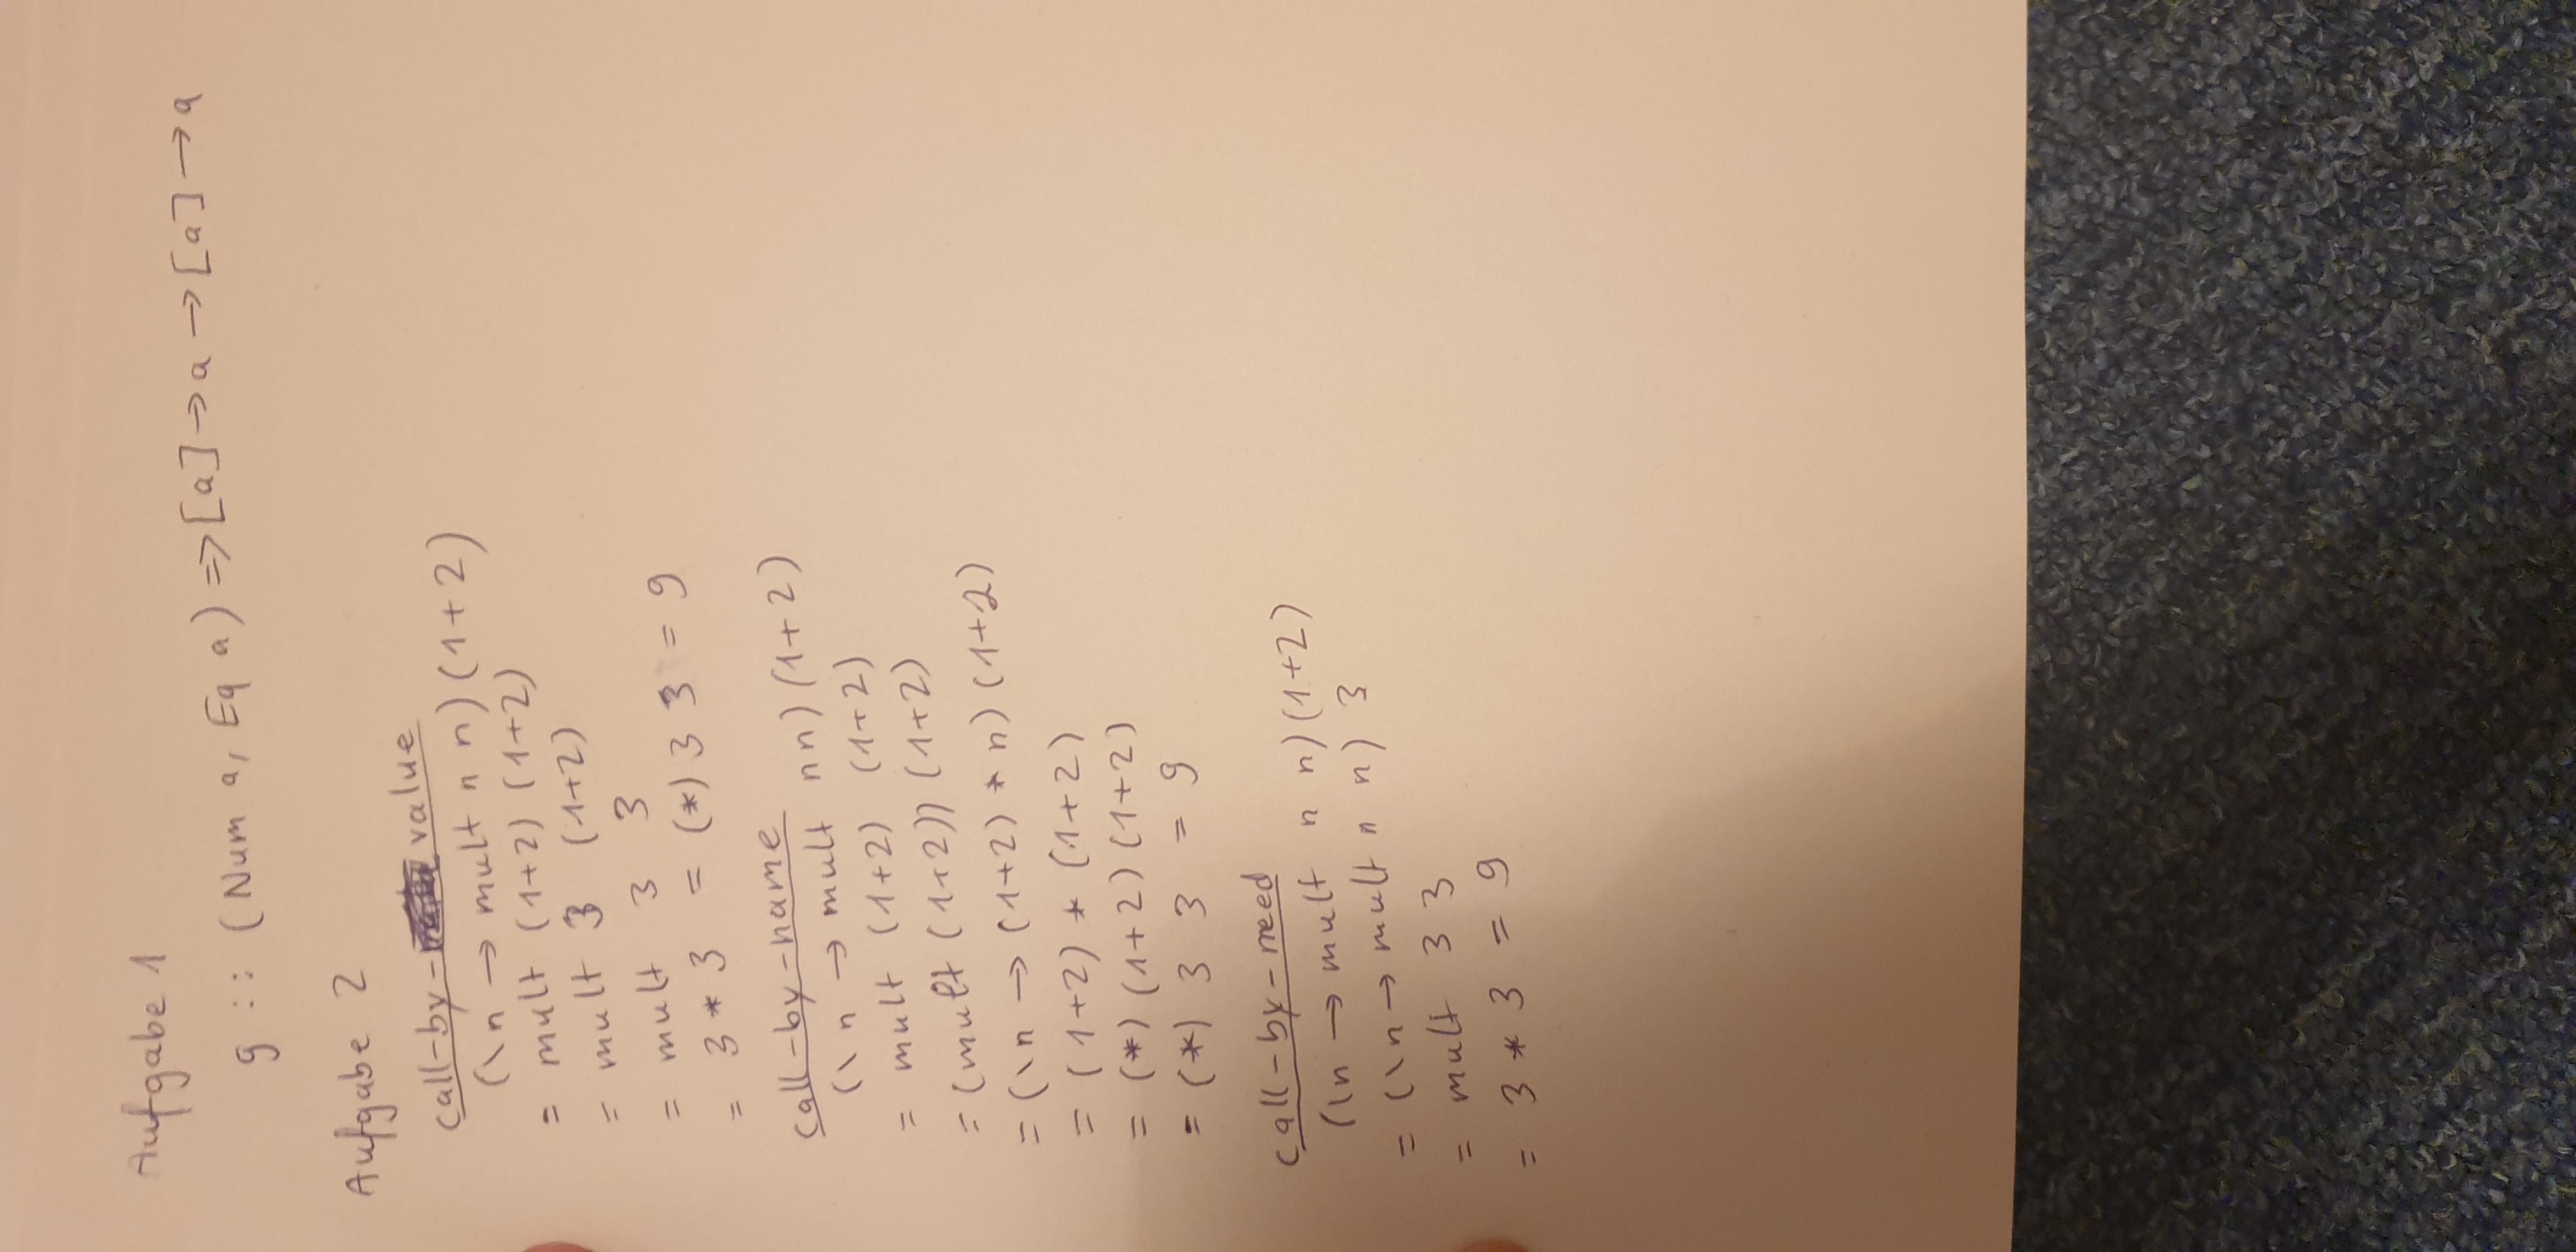 Aufgabe 1
g :: (Num a, Eq a) => [a] → a → [a] → a
Aufgabe 2
call-by- value
(\n → mult n n) (1+2)
= mult (1+2) (1+2)
= mult 3 (1+2)
= mult 3 3
= 3 * 3 = (*) 3 3 = 9
call-by-name
(\n → mult n n) (1+2)
= mult (1+2) (1+2)
= (mult (1+2)) (1+2)
= (\n → (1+2) * n) (1+2)
= (1+2) * (1+2)
= (*) (1+2) (1+2)
= (*) 3 3 = 9
call-by-need
(\n → mult n n) (1+2)
= (\n → mult n n) 3
= mult 3 3
= 3 * 3 = 9